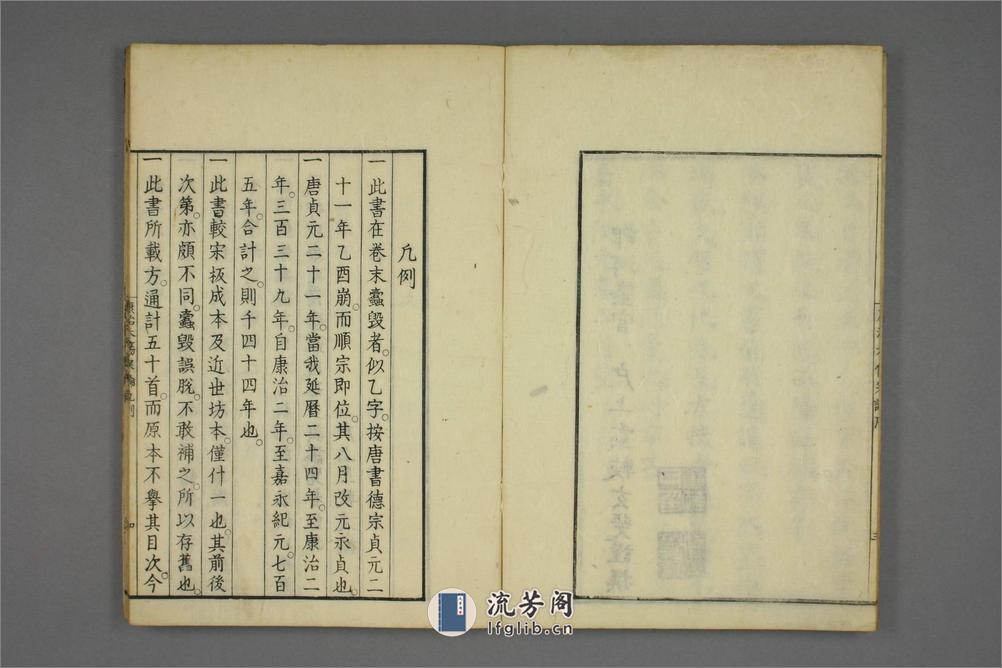 凡例
一此書在卷末蠹毀者。似乙字。按唐書德宗貞元二
十一年乙酉崩。而順宗即位。其八月改元永貞也。
一唐貞元二十一年。當我延曆二十四年。至康治二
年。三百三十九年。自康治二年。至嘉永紀元。七百
五年。合計之。則千四十四年也。
一此書較宋板成本及近世坊本。僅什一也。其前後
次第。亦頗不同。蠹毀誤脫。不敢補之。所以存舊也。
一此書所載方。通計五十首。而原本不擧其目次。今
流芳阁
lfglib.cn